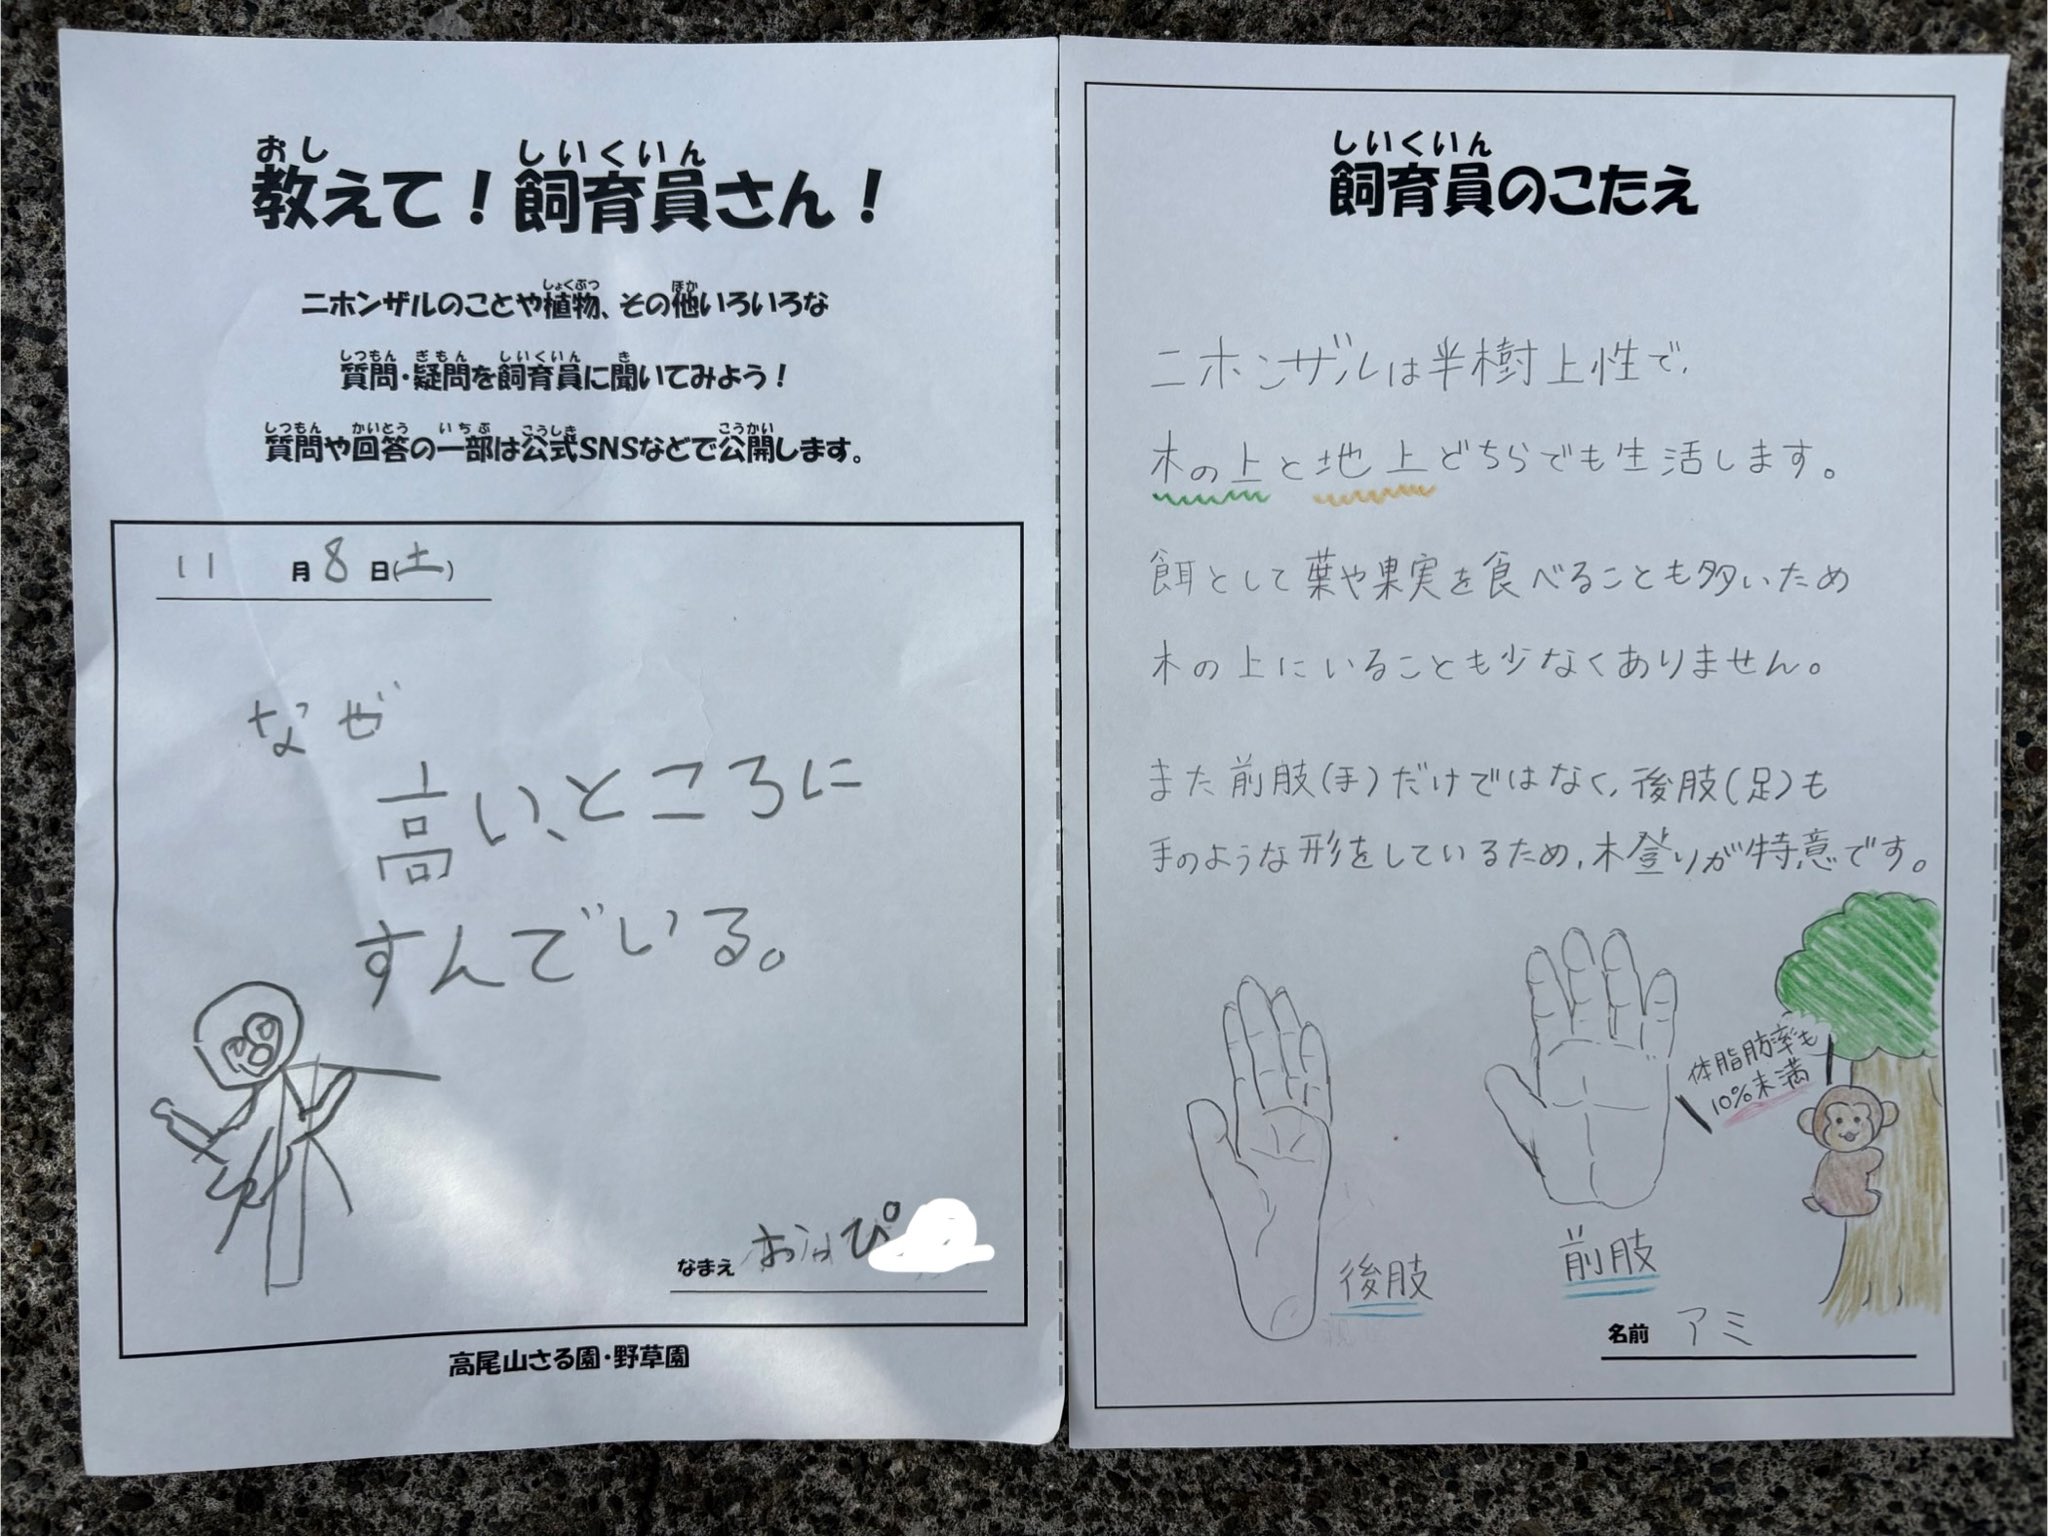 教えて！飼育員さん！
おし しいくいん
ニホンザルのことや植物、その他いろいろな
しょくぶつ ほか
質問・疑問を飼育員に聞いてみよう！
しつもん ぎもん しいくいん き
質問や回答の一部は公式SNSなどで公開します。
しつもん かいとう いちぶ こうしき こうかい
11月8日(土)
なぜ
高い、ところに
すんでいる。
なまえ
高尾山さる園・野草園
飼育員のこたえ
しいくいん
ニホンザルは半樹上性で、
木の上と地上どちらでも生活します。
餌として葉や果実を食べることも多いため
木の上にいることも少なくありません。
また前肢(手)だけではなく、後肢(足)も
手のような形をしているため、木登りが特意です。
体脂肪率も
10%未満
前肢
後肢
名前 アミ